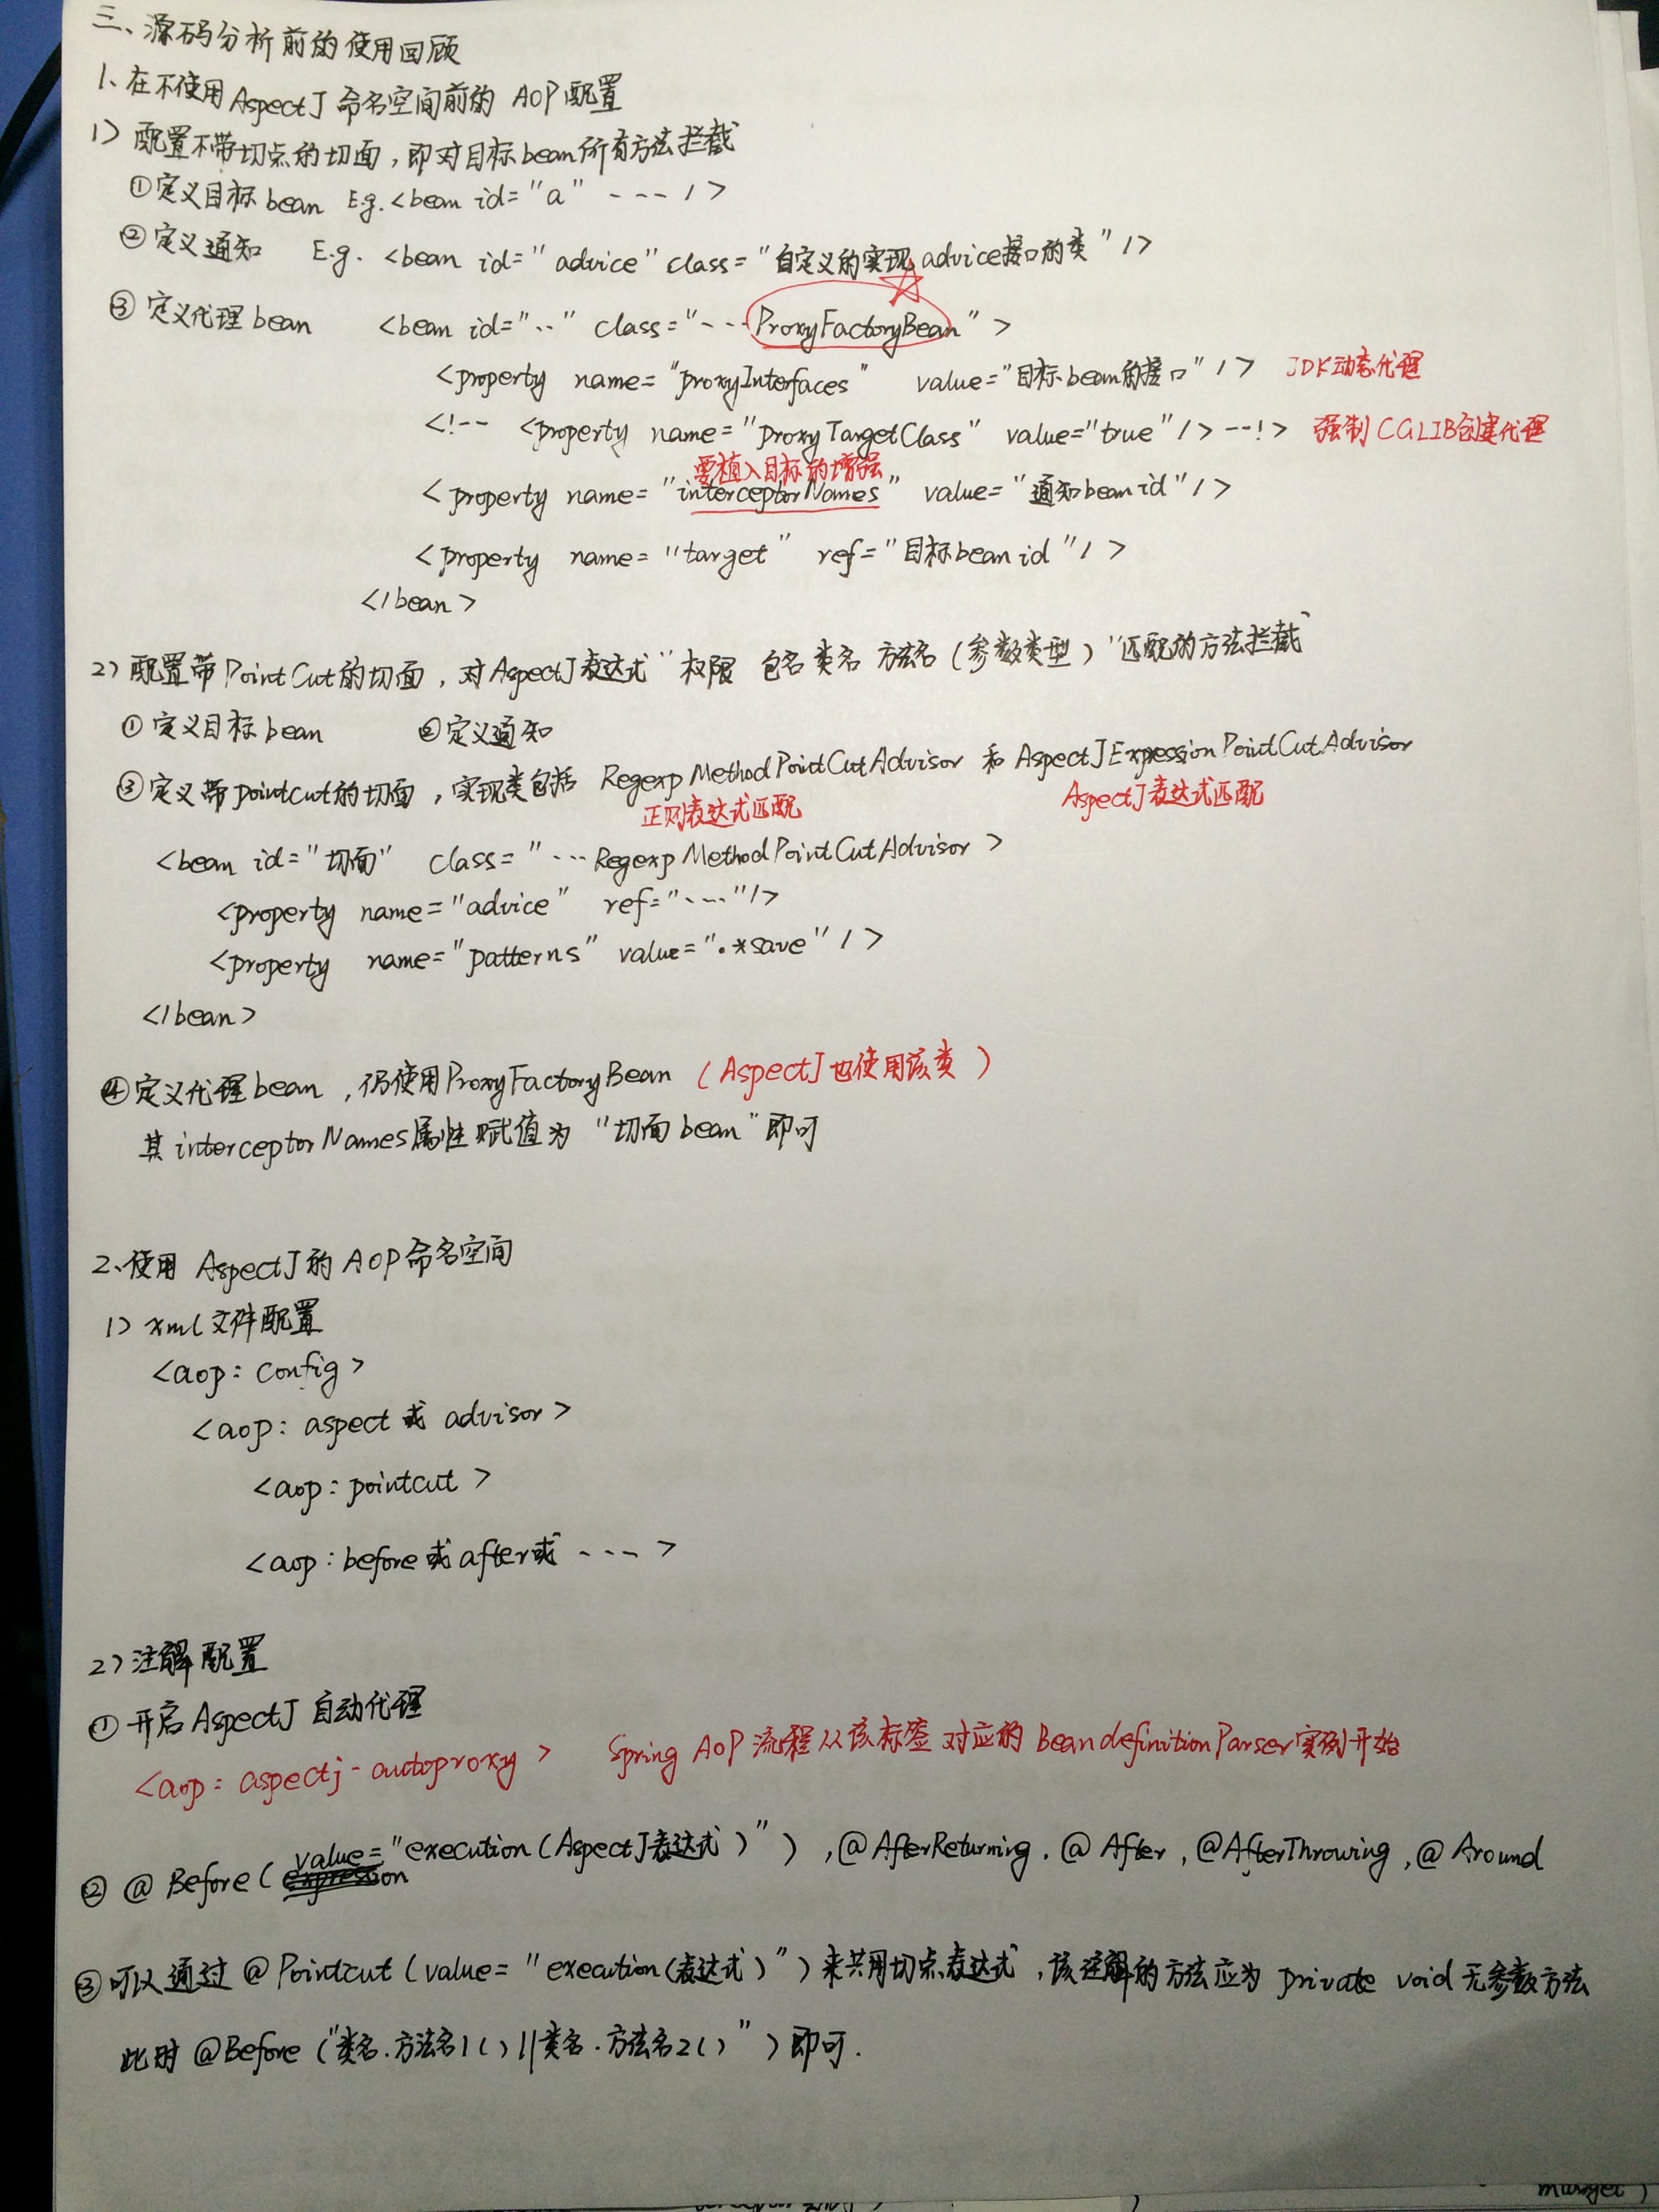 三、源码分析前的使用回顾
1、在不使用AspectJ命名空间前的 AOP配置
1> 配置不带切点的切面,即对目标bean所有方法拦截
①定义目标bean E.g.<bean id="a" ---- />
②定义通知 E.g. <bean id="advice" class="自定义的实现advice接口的类"/>
③定义代理bean <bean id=".." class="---ProxyFactoryBean">
<property name="proxyInterfaces" value="目标bean的接口"/> JDK动态代理
<!-- <property name="proxyTargetClass" value="true"/> --!> 强制CGLIB创建代理
要植入目标的增强
<property name="interceptorNames" value="通知bean id"/>
<property name="target" ref="目标bean id"/>
</bean>
2>配置带PointCut的切面,对AspectJ表达式"权限 包名 类名 方法名(参数类型)"匹配的方法拦截
①定义目标bean ②定义通知
③定义带pointcut的切面,实现类包括 RegexpMethodPointCutAdvisor 和 AspectJExpressionPointCutAdvisor
正则表达式匹配 AspectJ表达式匹配
<bean id="切面" class="---RegexpMethodPointCutAdvisor>
<property name="advice" ref="----"/>
<property name="patterns" value=".*save"/>
</bean>
④定义代理bean,仍使用ProxyFactoryBean (AspectJ也使用该类)
其interceptorNames属性赋值为"切面bean"即可
2、使用 AspectJ的AOP命名空间
1> xml文件配置
<aop:config>
<aop:aspect或 advisor>
<aop:pointcut>
<aop:before或after或---->
2>注解配置
①开启AspectJ自动代理
<aop:aspectj-autoproxy> Spring AOP 流程从该标签对应的BeandefinitionParser实例开始
②@Before(value="execution(AspectJ表达式)"),@AfterReturning,@After,@AfterThrowing,@Around
③可以通过@Pointcut(value="execution(表达式)")来共用切点表达式,该注解的方法应为 private void 无参数方法
此时@Before("类名.方法名1()||类名.方法名2()")即可.